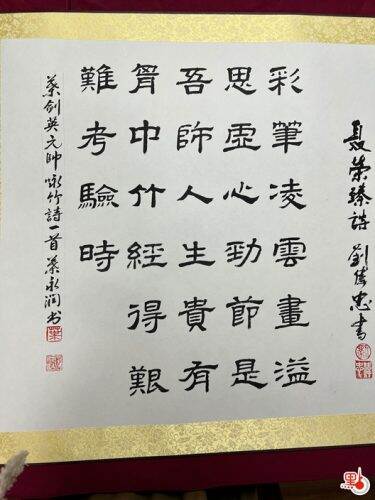 聂榮臻詩 劉忠書
彩筆凌雲畫溢
思虛心勁節是
吾師人生貴有
胷中竹經得艱
難考驗時
葉剑英元帅咏竹詩一首 葉永润书
點